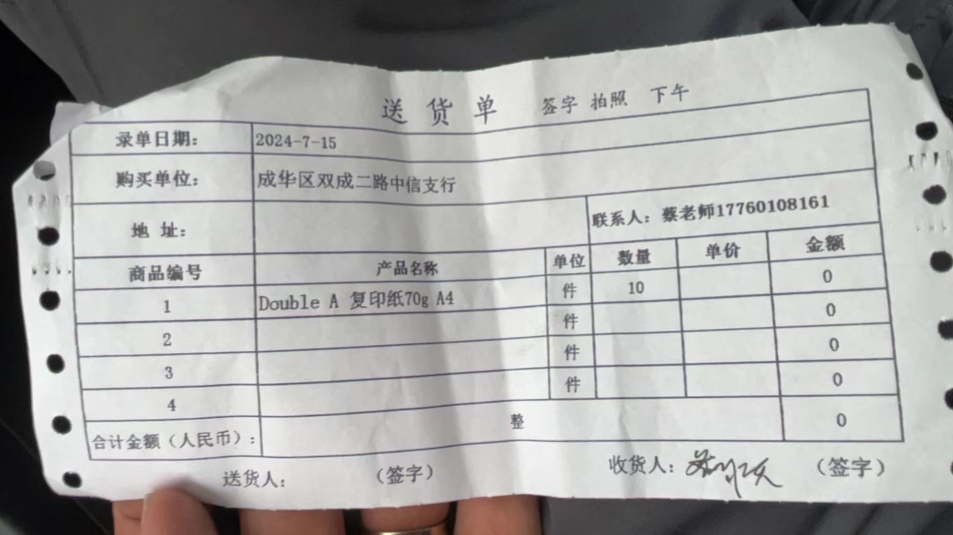 送货单 签字 拍照 下午
录单日期: 2024-7-15
购买单位: 成华区双成二路中信支行
地 址: 联系人: 蔡老师17760108161
商品编号 产品名称 单位 数量 单价 金额
1 Double A 复印纸70g A4 件 10 0
2 件 0
3 件 0
4 件 0
合计金额（人民币）: 整 0
送货人: （签字） 收货人: （签字）